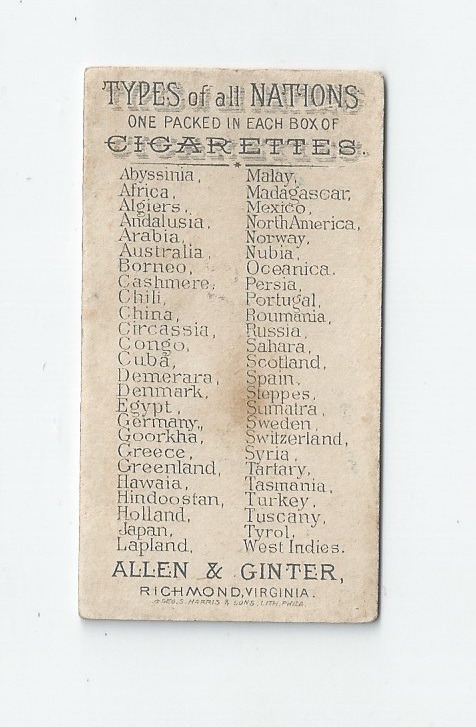 TYPES of all NATIONS
ONE PACKED IN EACH BOX OF
CIGARETTES.
Abyssinia,
Africa,
Algiers,
Andalusia,
Arabia,
Australia,
Borneo,
Cashmere,
Chili,
China,
Circassia,
Congo,
Cuba,
Demerara,
Denmark,
Egypt,
Germany,
Goorkha,
Greece,
Greenland,
Hawaia,
Hindoostan,
Holland,
Japan,
Lapland,
Malay,
Madagascar,
Mexico,
North America,
Norway,
Nubia,
Oceanica.
Persia,
Portugal,
Roumania,
Russia,
Sahara,
Scotland,
Spain,
Steppes,
Sumatra,
Sweden,
Switzerland,
Syria,
Tartary,
Tasmania,
Turkey,
Tuscany,
Tyrol,
West Indies.
ALLEN & GINTER,
RICHMOND, VIRGINIA.
GEO. S. HARRIS & SONS, LITH. PHILA.